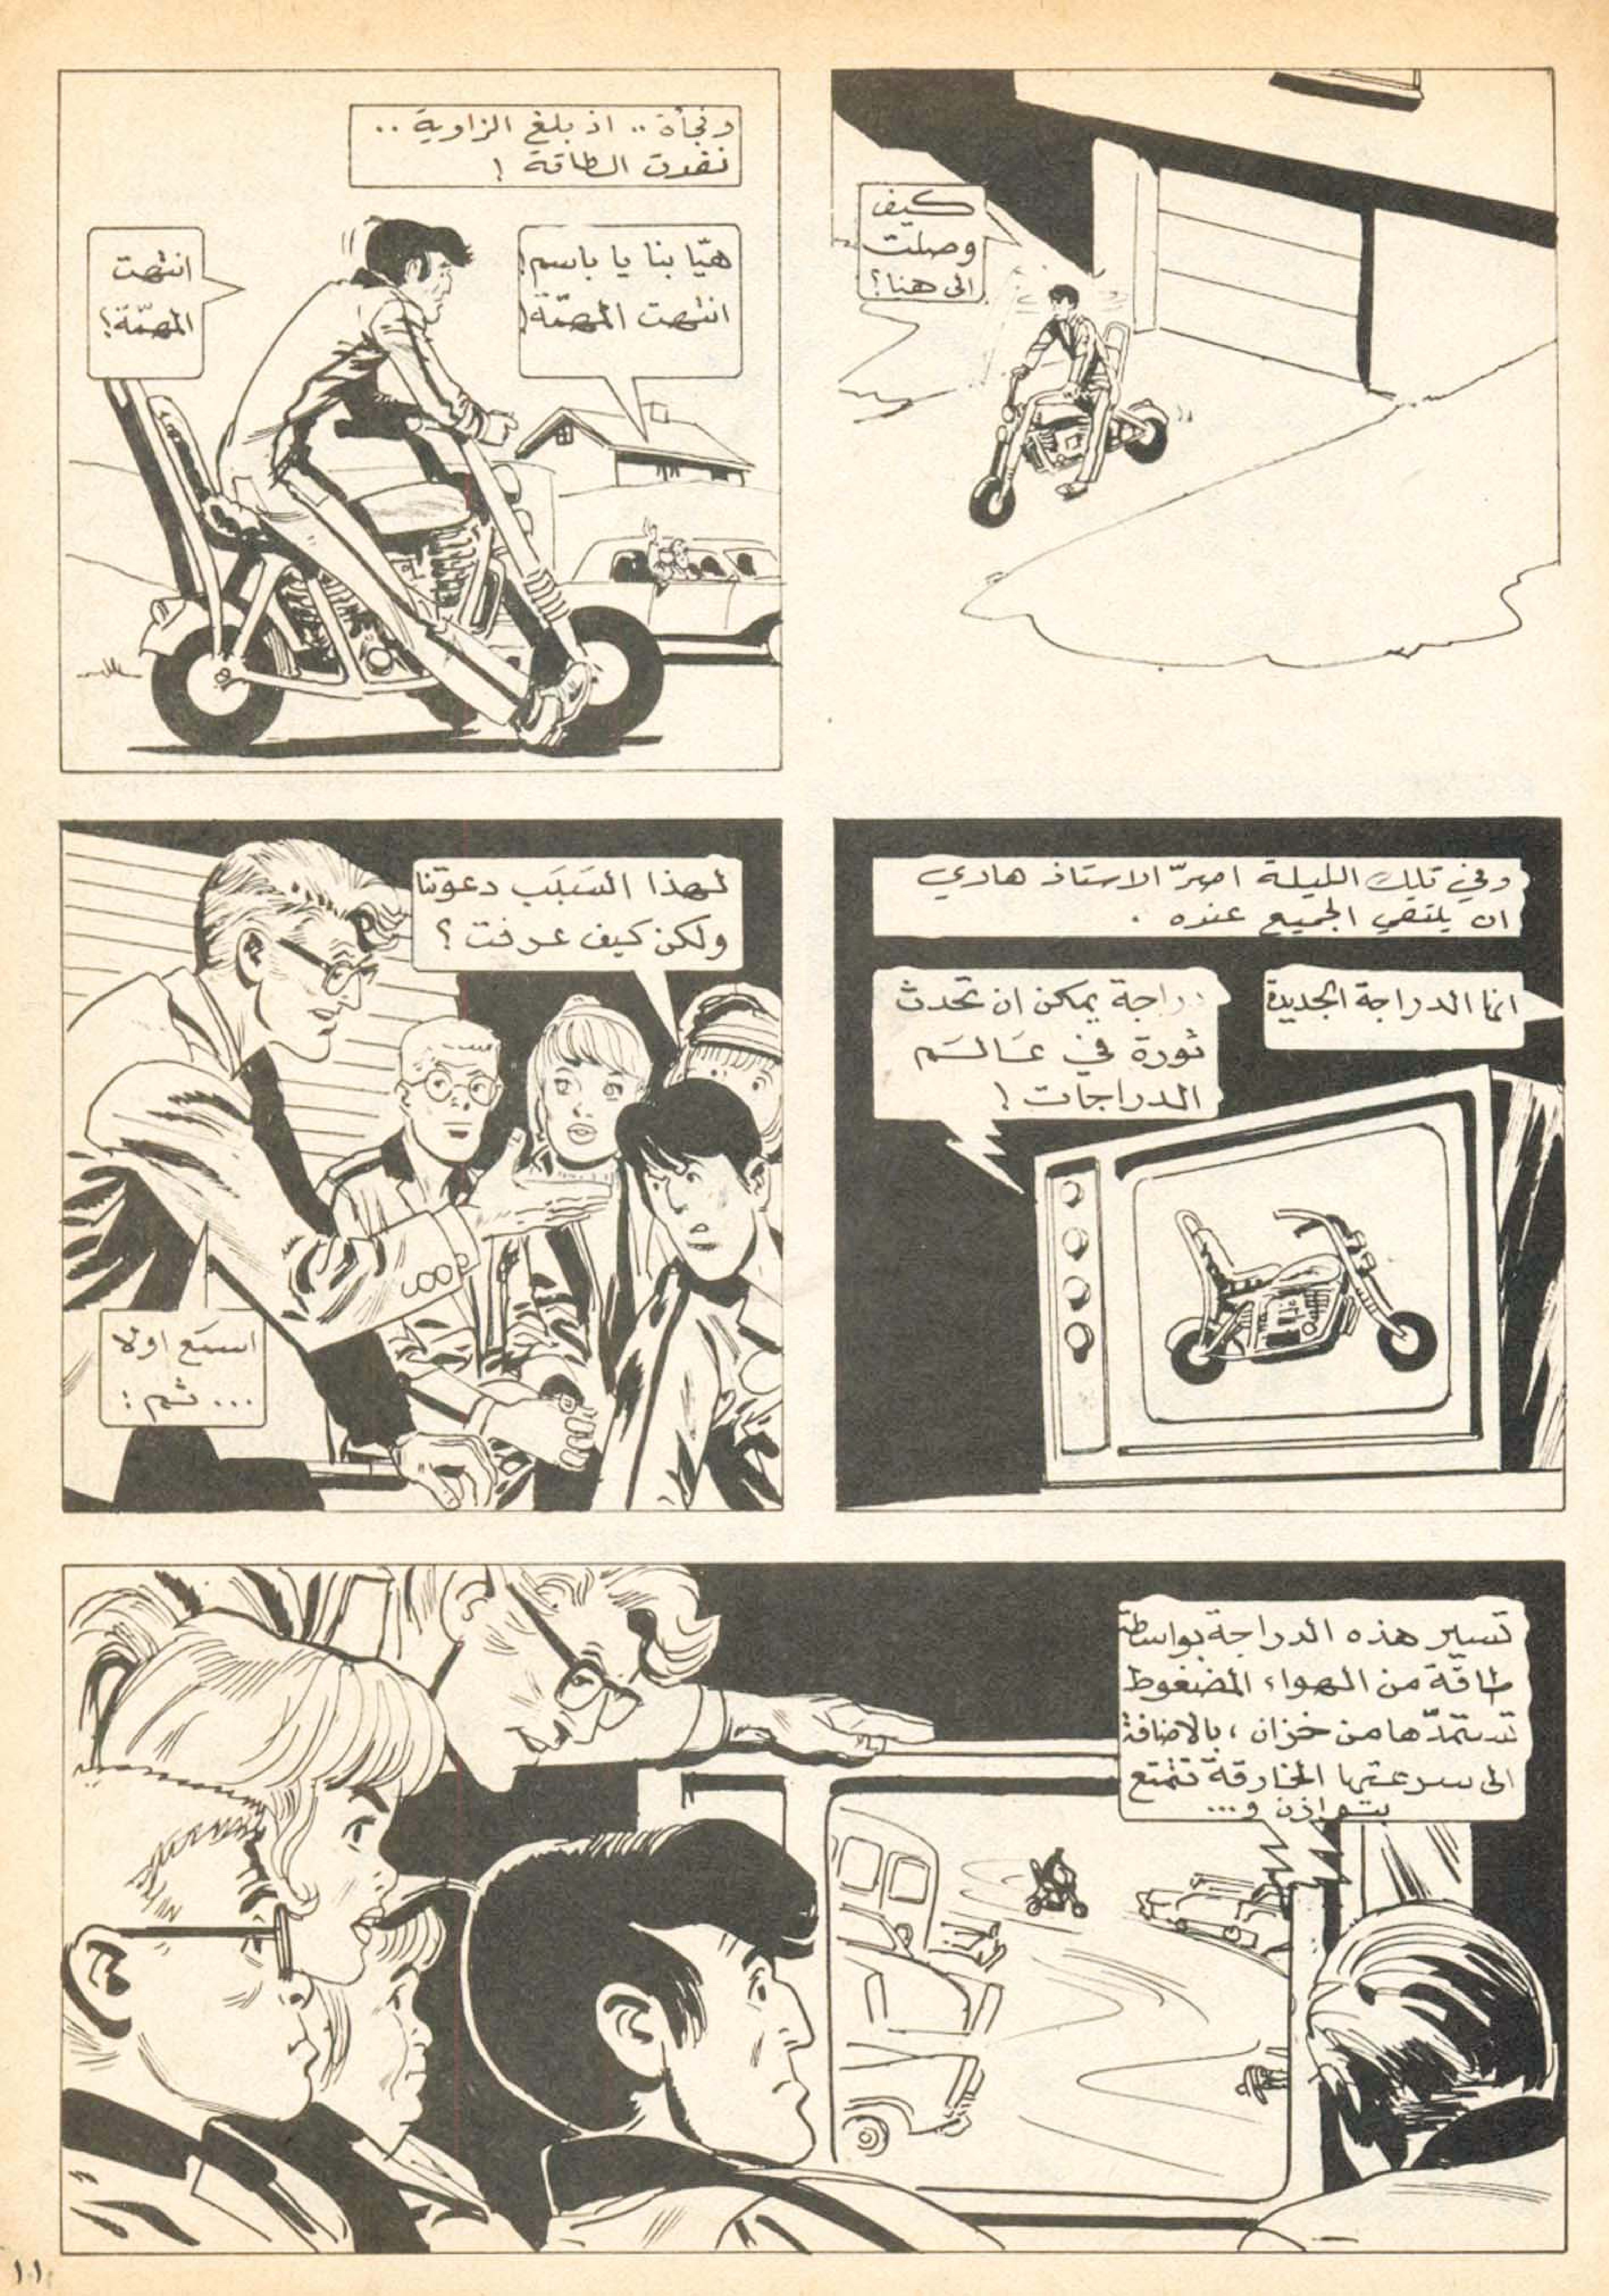 كيف
وصلت
الى هنا؟
وفجأة .. اذ بلغ الزاوية ..
نفدت الطاقة !
هيّا بنا يا باسم!
انتهت المهمّة!
انتهت
المهمّة؟
وفي تلك الليلة اصرّ الاستاذ هادي
ان يلتقي الجميع عنده .
انها الدراجة الجديدة
دراجة يمكن ان تحدث
ثورة في عَالَم
الدراجات !
لهذا السَبَب دعوتنا
ولكن كيف عرفت ؟
اسمَع اولا
... ثم :
تسير هذه الدراجة بواسطة
طاقة من الهواء المضغوط
تستمدّها من خزان ، بالاضافة
الى سرعتها الخارقة تتمتع
بتوازن و...
١١